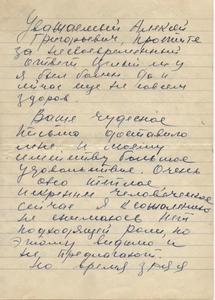 Уважаемый Алексей
Григорьевич, Простите
за несвоевременный
ответ. Целый м-ц
я был болен да и
сейчас еще не совсем
здоров.
Ваше чудесное
письмо доставило
мне и моему
семейству большое
удовольствие. Очень
оно теплое
искренне человеческое
Сейчас я к сожалению
не снимаюсь. Нет
подходящей роли, но
этому видимо и
не предлагают.
Но время зря я